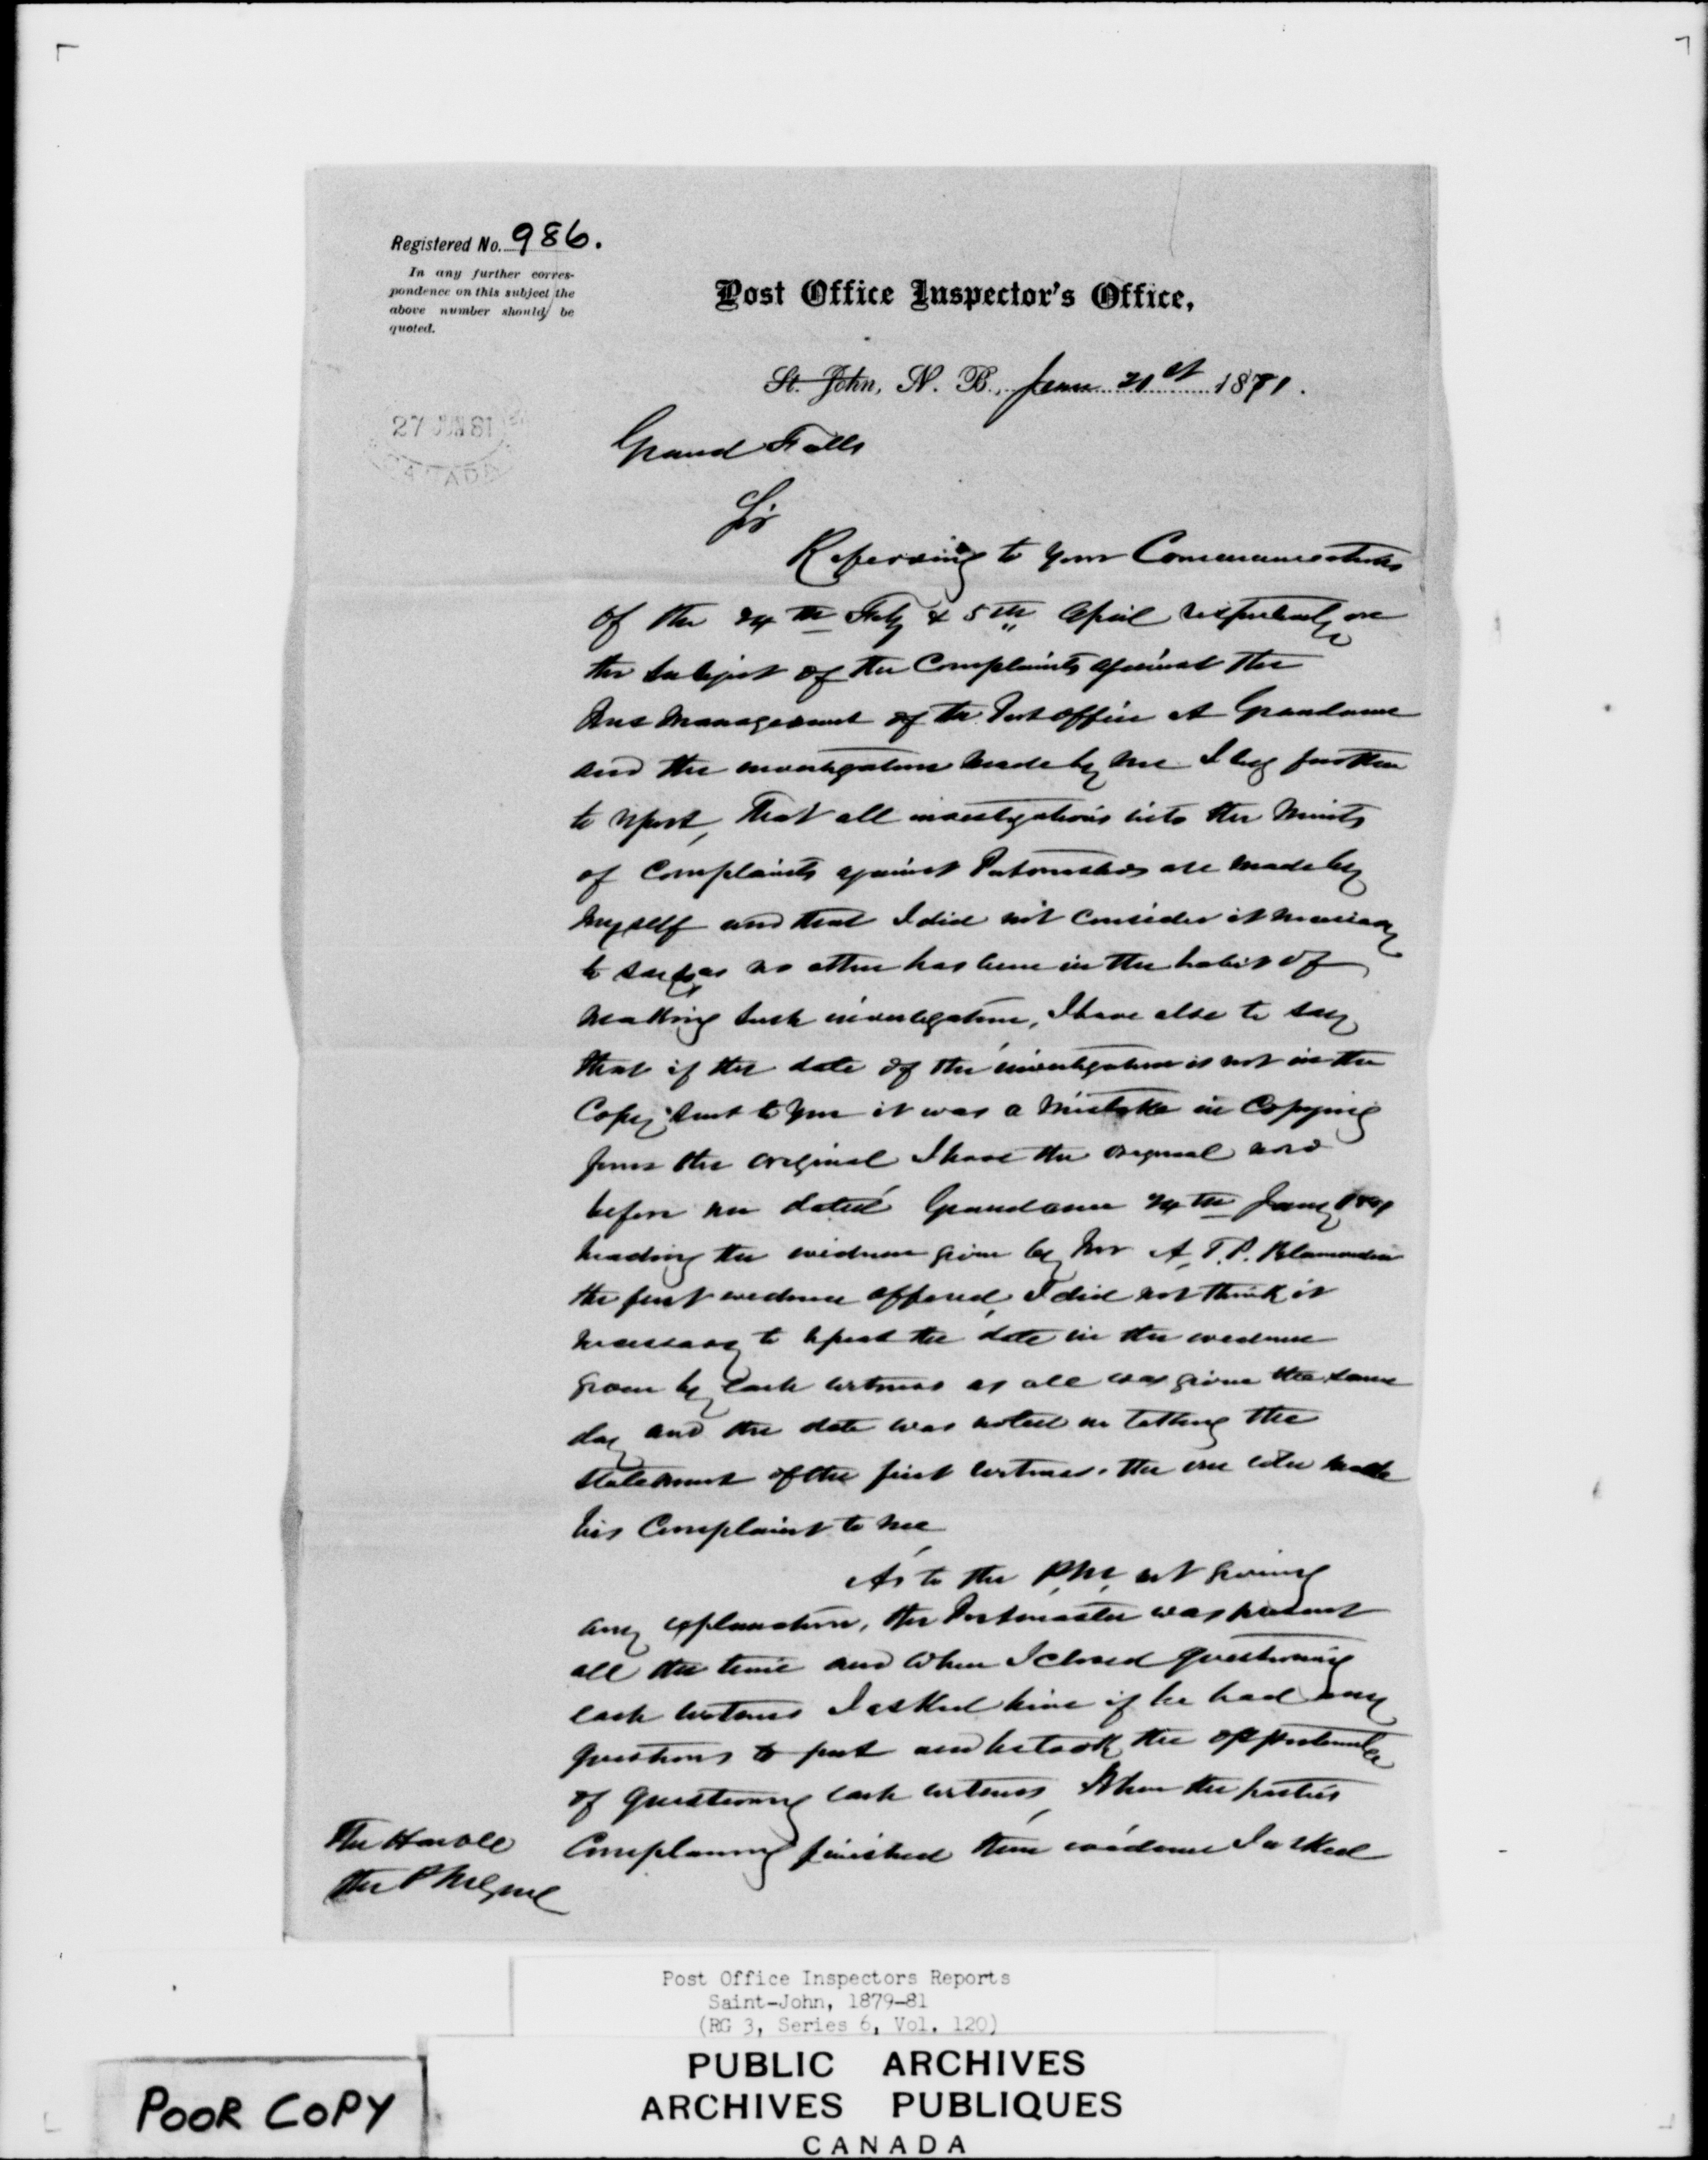 Registered No. 986.
In any further corres-
pondence on this subject the
above number should be
quoted.
Post Office Inspector's Office,
St. John, N. B., June 21st 1881.
27 JUN 81
CANADA
Grand Falls
Sir
Referring to your Communications
of the 24th Feby & 5th April respectively on
the subject of the Complaints against the
management of the Post Office at Grandance
and the investigation made by me I beg further
to report, that all investigations into the merits
of Complaints against Postmasters are made by
myself and that I did not consider it necessary
to say so as no other has been in the habit of
making such investigation, I have also to say
that if the date of the investigation is not in the
Copy sent to you it was a mistake in Copying
from the original I have the original now
before me dated Grandance 24th Jany 1881
heading the evidence given by Mr A. T. P.
the first evidence offered, I did not think it
necessary to repeat the date in the evidence
given by each witness as all was given the same
day and the date was noted in taking the
statement of the first witness. the one who made
his Complaint to me,
As to the P.M. not giving
any explanation, the Postmaster was present
all the time and when I closed questioning
each witness I asked him if he had any
questions to put and he took the opportunity
of questioning each witness, When the parties
Complaining finished their evidence I asked
The Honble
the P M General
Post Office Inspectors Reports
Saint-John, 1879-81
(RG 3, Series 6, Vol. 120)
PUBLIC ARCHIVES
ARCHIVES PUBLIQUES
CANADA
POOR COPY